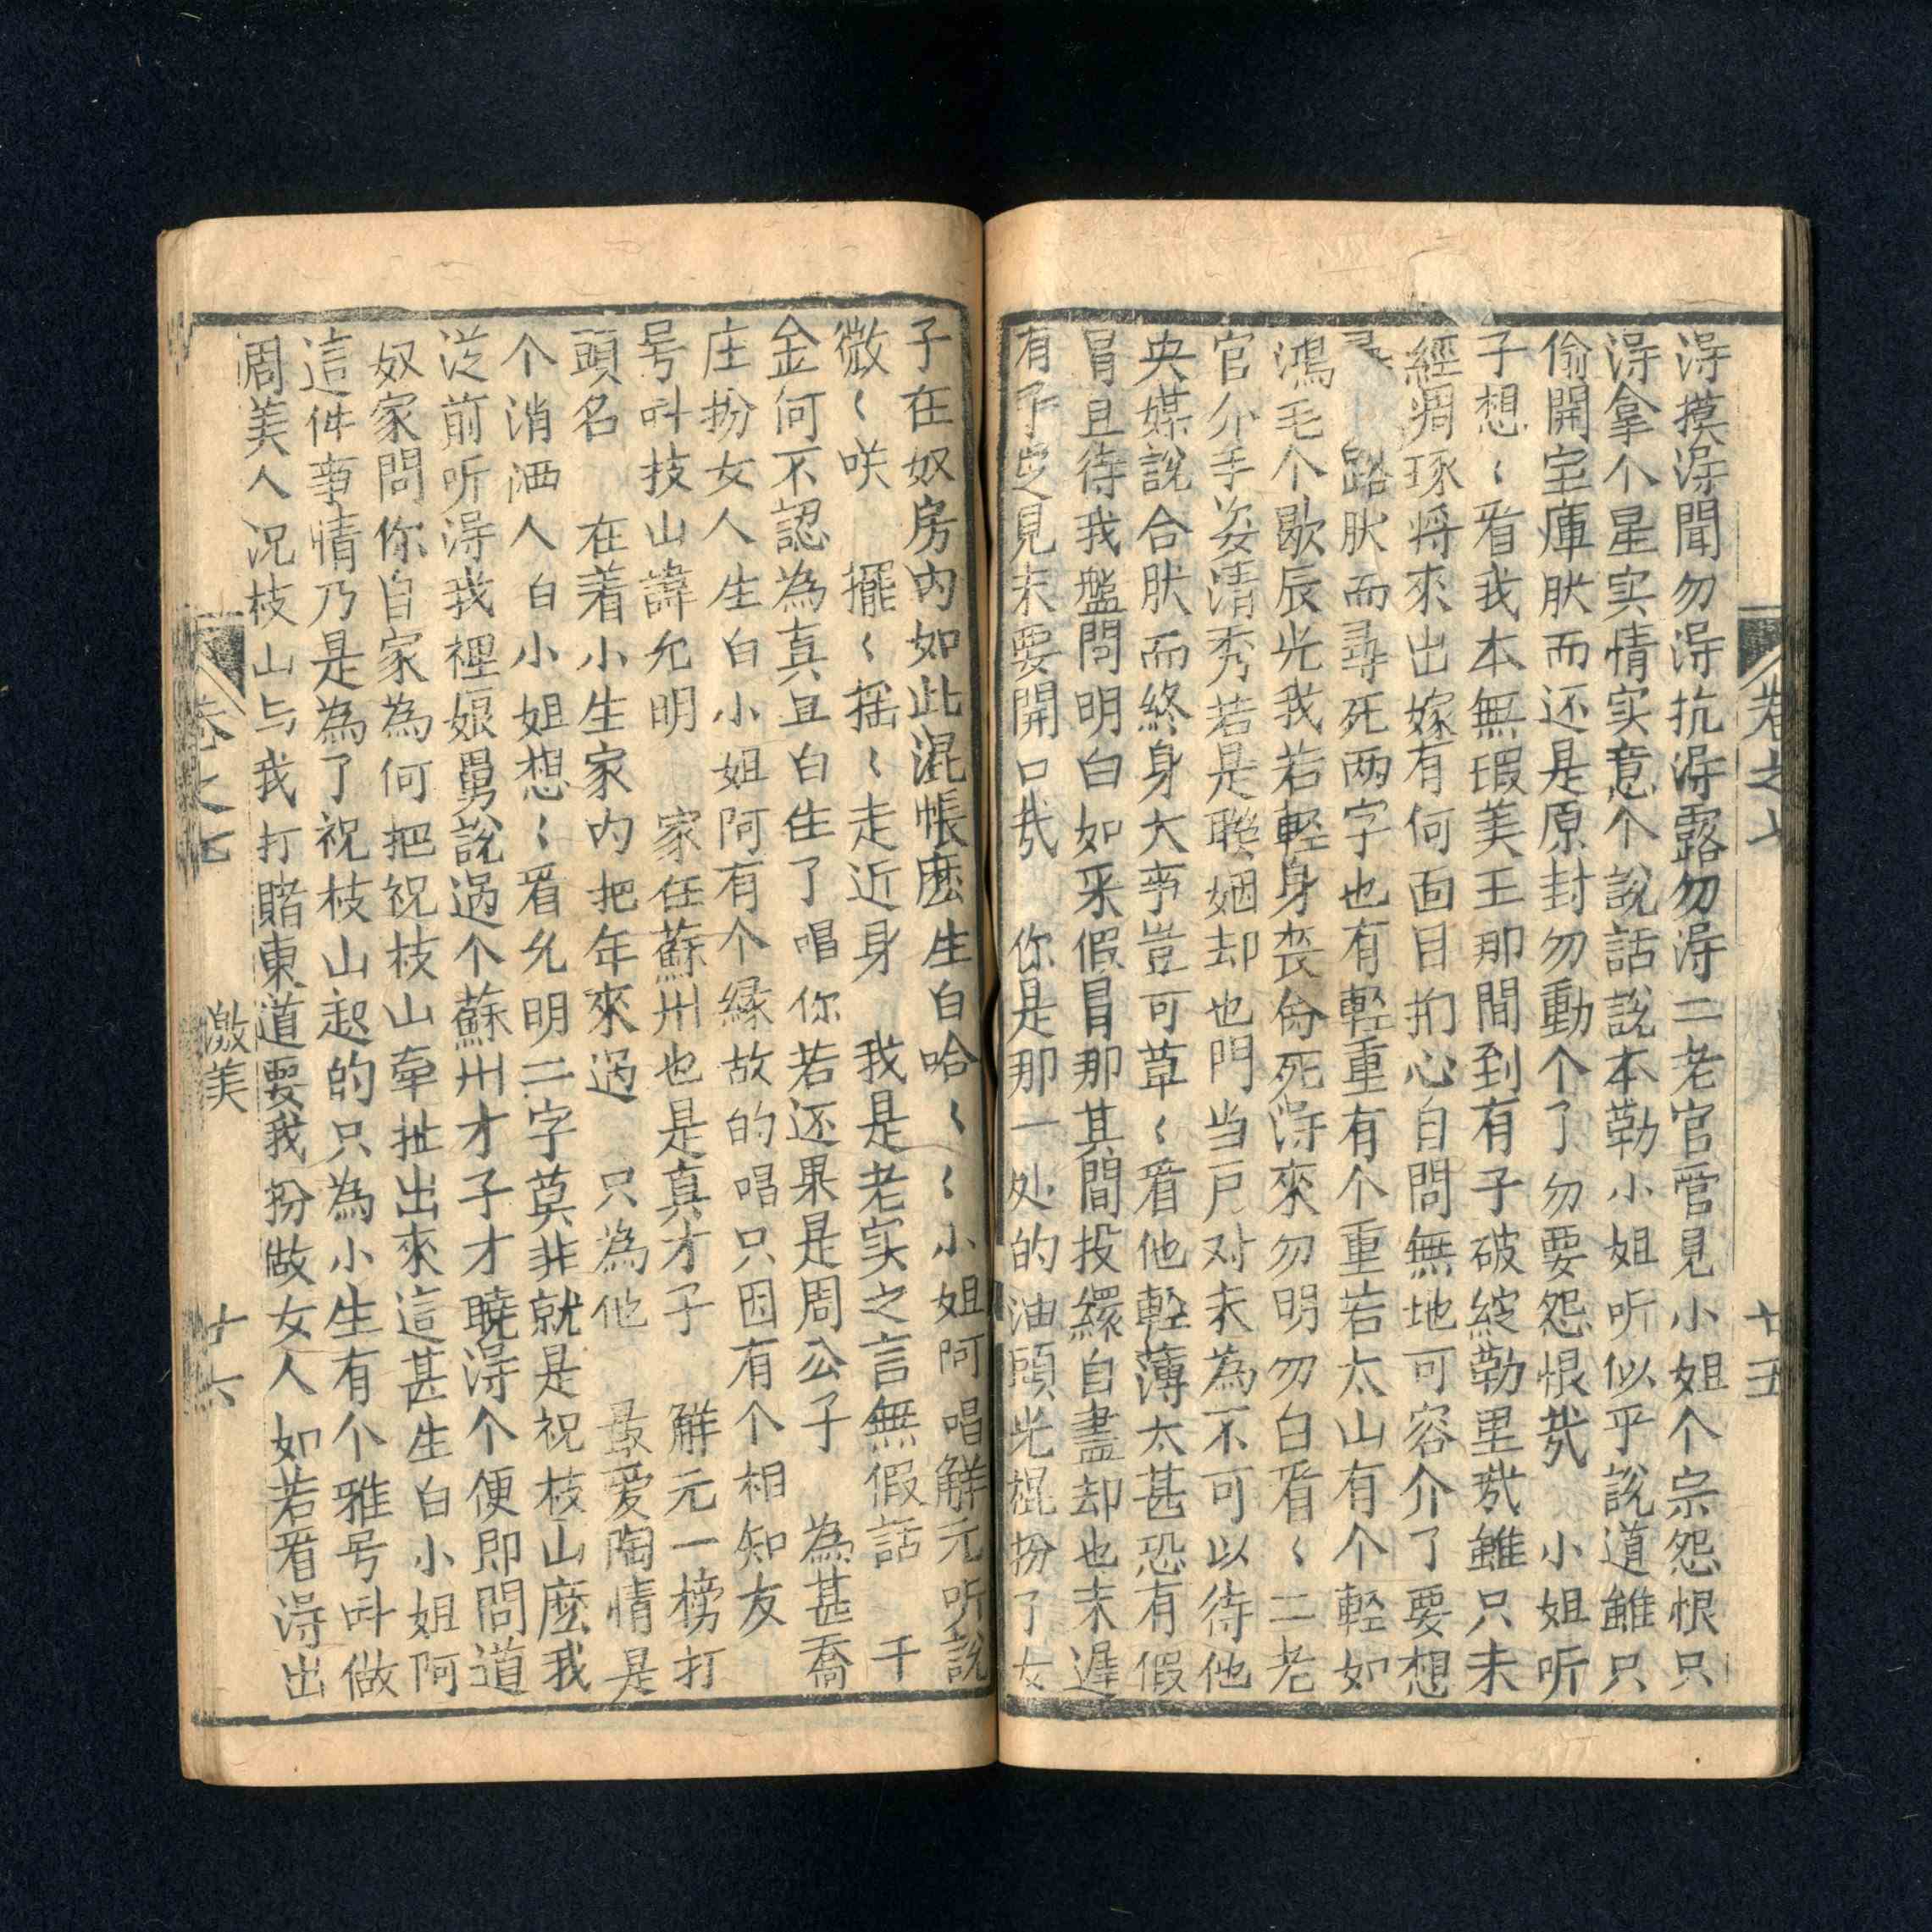 淂摸淂聞勿淂抗淂露勿淂二老官㝵見小姐个宗怨恨只
淂拿个星实情实意个說話說本勒小姐听似乎說道雖只
偷開宝庫肰而还是原封勿動个了勿要怨恨㢤　小姐听
子想〻看我本無瑕美王那間到有子破綻勒里㢤雖只未
經琱琢将來出嫁有何面目扪心自問無地可容介了要想
路肰而尋死两字也有輕重有个重若太山有个輕如
鴻毛个歇辰光我若輕身丧命死淂來勿明勿白看〻二老
官介手姿清秀若是聮姻却也門当戸对未為不可以待他
央媒說合肰而終身大亊豈可草〻看他輕薄太甚恐有假
冒且待我盤問明白如采假冒那其間投繯自盡却也未遲
有子定見未要開口㢤　你是那一处的油頭光棍扮了女
卷之七
廿五
子在奴房内如此混帳麽生白哈〻〻小姐阿唱解元听說
微〻咲　擺〻揺〻走近身　我是老实之言無假話　千
金何不認為真且白生了唱你若还果是周公子　為甚喬
庄扮女人生白小姐阿有个縁故的唱只因有个相知友
号叫技山諱允明　家在蘇州也是真才子　解元一榜打
頭名　在着小生家内把年來过　只為他　最爱陶情是
个消洒人白小姐想〻看允明二字莫非就是祝枝山麽我
从前听淂我裡娘舅說过个蘇州才子才曉淂个便即問道
奴家問你自家為何把祝枝山牽扯出來這甚生白小姐阿
這件事情乃是為了祝枝山起的只為小生有个雅号叫做
周美人况枝山与我打賭東道要我扮做女人如若看淂出
卷之七
激美
十六